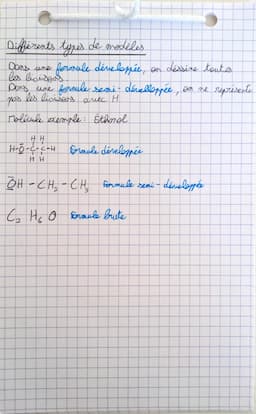 Différents types de modèles
Dans une formule développée, on dessine toutes
les liaisons.
Dans une formule semi-développée, on ne représente
pas les liaisons avec H
Molécule exemple : Éthanol
H H
H-O-C-C-H formule développée
H H
OH-CH₂-CH₃ formule semi-développée
C₂ H₆ O formule brute